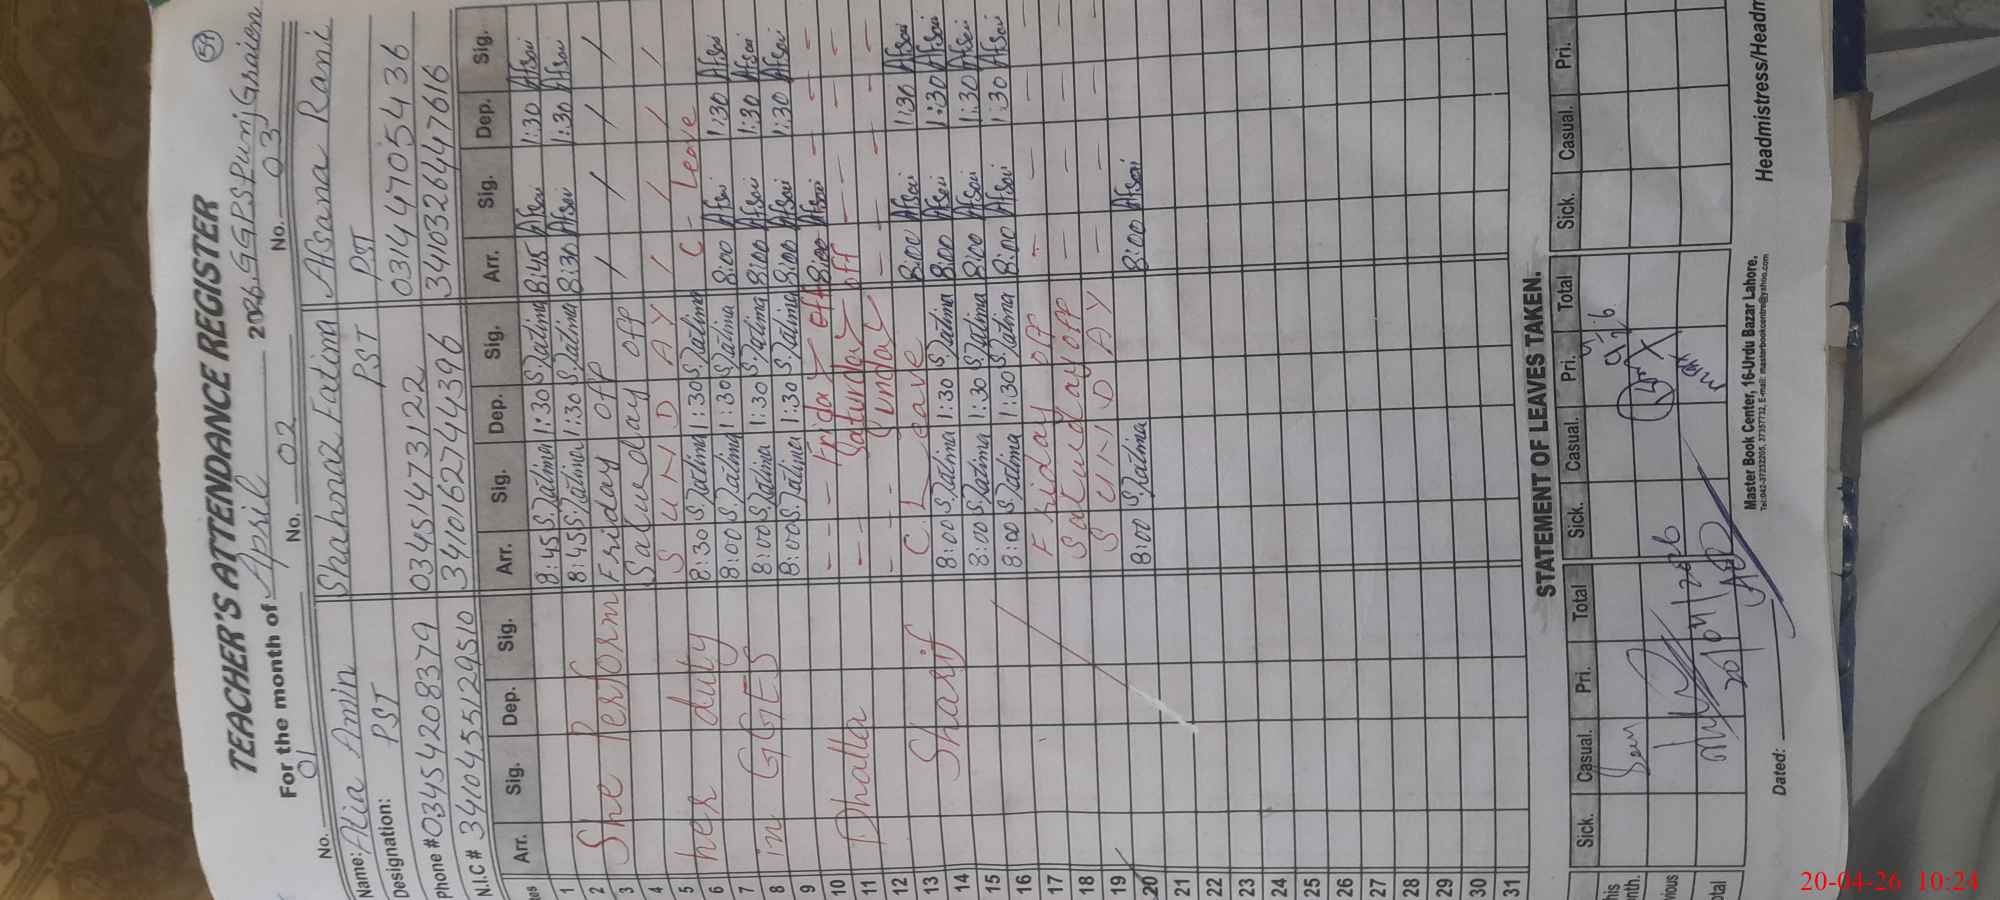 57
TEACHER'S ATTENDANCE REGISTER
For the month of April 2026 GGPS Punj Graien
No. 01 No. 02 No. 03
Name: Alia Amin Shahnaz Fatima Afsana Rani
Designation: PST PST PST
Phone # 03454208379 03451473122 03144705436
N.I.C # 3410455129510 3410162744396 3410326447616
Arr. Sig. Dep. Sig. Arr. Sig. Dep. Sig. Arr. Sig. Dep. Sig.
1 8:45 S.Fatima 1:30 S.Fatima 8:45 Afsai 1:30 Afsai
2 She Perform 8:45 S.Fatima 1:30 S.Fatima 8:30 Afsai 1:30 Afsai
3 Friday off / / / /
4 Saturday off / / / /
5 her duty S U N D A Y
6 8:30 S.Fatima 1:30 S.Fatima C - Leave
7 in GGES 8:00 S.Fatima 1:30 S.Fatima 8:00 Afsai 1:30 Afsai
8 8:00 S.Fatima 1:30 S.Fatima 8:00 Afsai 1:30 Afsai
9 8:00 S.Fatima 1:30 S.Fatima 8:00 Afsai 1:30 Afsai
10 Dhalla - - - Friday off 8:00 Afsai - -
11 - - - Saturday off - - -
12 - - - Sunday - - - -
13 Sharif C. Leave 8:00 Afsai 1:30 Afsai
14 8:00 S.Fatima 1:30 S.Fatima 8:00 Afsai 1:30 Afsai
15 8:00 S.Fatima 1:30 S.Fatima 8:00 Afsai 1:30 Afsai
16 8:00 S.Fatima 1:30 S.Fatima 8:00 Afsai 1:30 Afsai
17 Friday off - - - -
18 Saturday off - - - -
19 S U N D A Y - - - -
20 8:00 S.Fatima 8:00 Afsai
21
22
23
24
25
26
27
28
29
30
31
STATEMENT OF LEAVES TAKEN.
Sick. Casual. Pri. Total Sick. Casual. Pri. Total Sick. Casual. Pri.
20/04/2026
Dated:
Master Book Center, 16-Urdu Bazar Lahore.
Headmistress/Headm
20-04-26 10:24